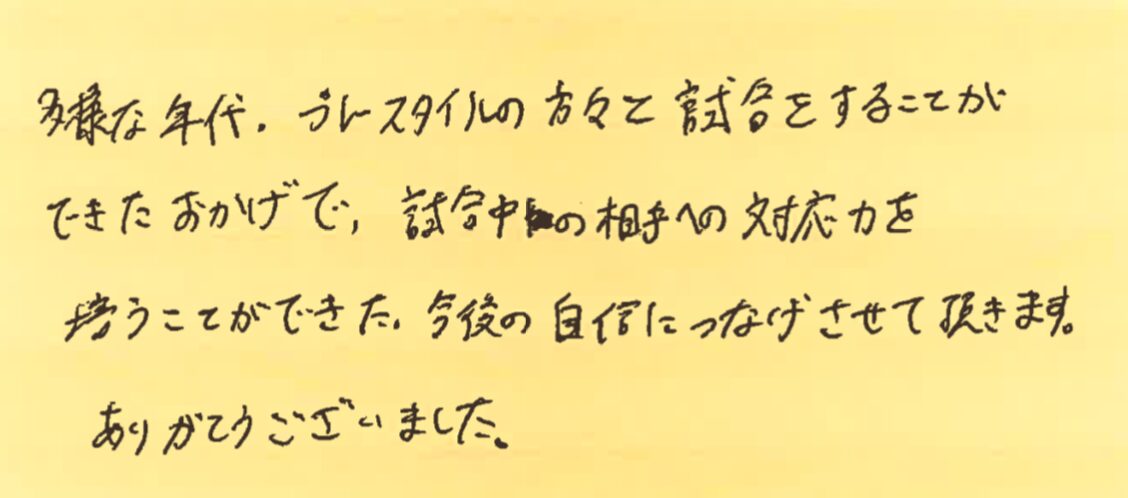 多様な年代、プレースタイルの方々と試合をすることが
できたおかげで、試合中の相手への対応力を
培うことができた。今後の自信につなげさせて頂きます。
ありがとうございました。